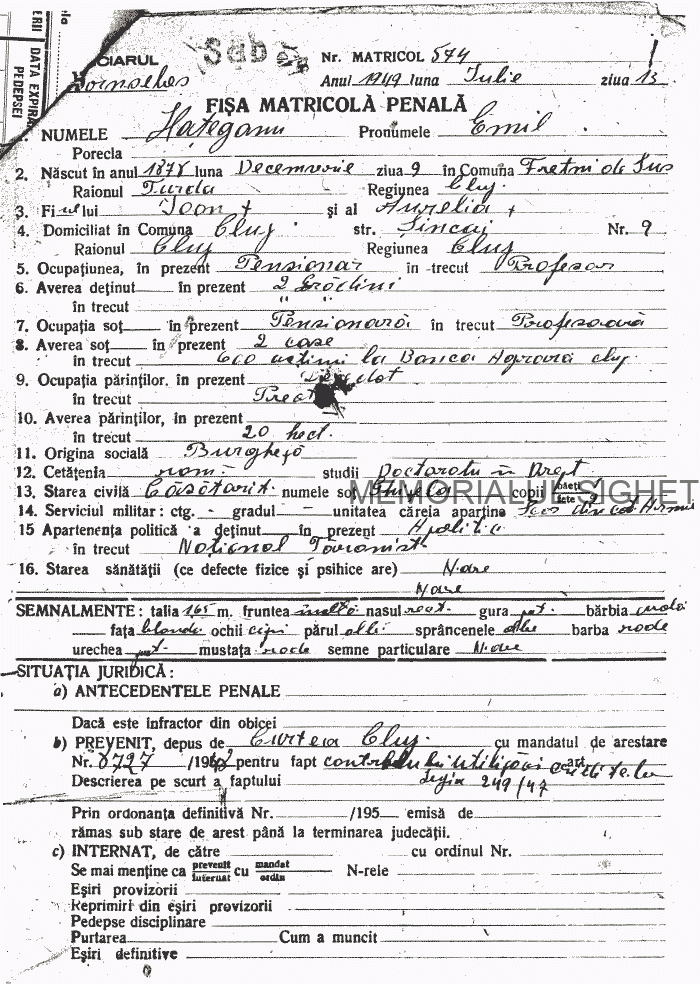 ERII
DATA EXPIRA
PEDEPSEI
CIARUL
Nr. MATRICOL 574
Anul 1949 luna Iulie ziua 13
FIȘA MATRICOLĂ PENALĂ
NUMELE Hațeganu Pronumele Emil
Porecla
2. Născut în anul 1878 luna Decemvrie ziua 9 în Comuna de Sus
Raionul Turda Regiunea Cluj.
3. Fiul lui Ioan + și al Aurelia +
4. Domiciliat în Comuna Cluj str. Șincai Nr. 9
Raionul Cluj Regiunea Cluj
5. Ocupațiunea, în prezent Pensionar în trecut Profesor
6. Averea deținut în prezent 2 Grădini
în trecut " "
7. Ocupația soț în prezent Pensionară în trecut Profesoară
8. Averea soț în prezent 2 case
în trecut 600 acțiuni la Banca Agrară Cluj.
9. Ocupația părinților. în prezent
în trecut
10. Averea părinților, în prezent
în trecut 20 hect.
11. Origina socială Burgheză
12. Cetățenia rom. studii Doctoratu în Drept
MEMORIALUL SIGHET
13. Starea civilă Căsătorit numele soț copii băeți fete
14. Serviciul militar: ctg. - gradul - unitatea căreia aparține
15 Apartenența politică a deținut în prezent Apolitic
în trecut Național Țărănist
16. Starea sănătății (ce defecte fizice și psihice are) N-are
N-are
SEMNALMENTE: talia 165 m. fruntea înaltă nasul gura bărbia
fața blondă ochii părul sprâncenele albe barba rade
urechea mustața rade semne particulare N-are
SITUAȚIA JURIDICĂ:
a) ANTECEDENTELE PENALE
Dacă este infractor din obicei
b) PREVENIT, depus de Curtea Cluj. cu mandatul de arestare
Nr. 8727 /19 pentru fapt art.
Descrierea pe scurt a faptului Legia 249/47
Prin ordonanța definitivă Nr. /195 emisă de
rămas sub stare de arest până la terminarea judecății.
c) INTERNAT, de către cu ordinul Nr.
Se mai menține ca prevenit internat cu mandat ordin N-rele
Eșiri provizorii
Reprimiri din eșiri provizorii
Pedepse disciplinare
Purtarea Cum a muncit
Eșiri definitive